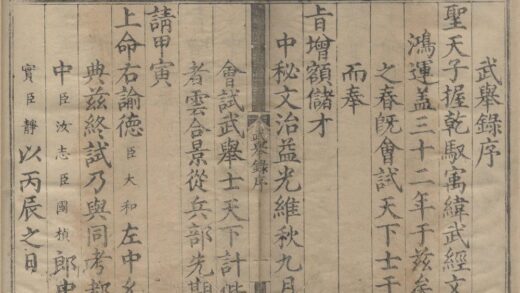 武舉錄序
聖天子握乾馭寓緯武經文
鴻運盖三十二年于兹矣
之春旣會試天下士于
而奉
旨增額儲才
中秘文治益光維秋九月
武舉錄序
會試武舉士天下計偕
者雲合景從兵部先期
請甲寅
上命右諭德臣大和左中
典兹終試乃與同考都
中臣汝志臣國楨郎中
實臣靜以丙辰之日